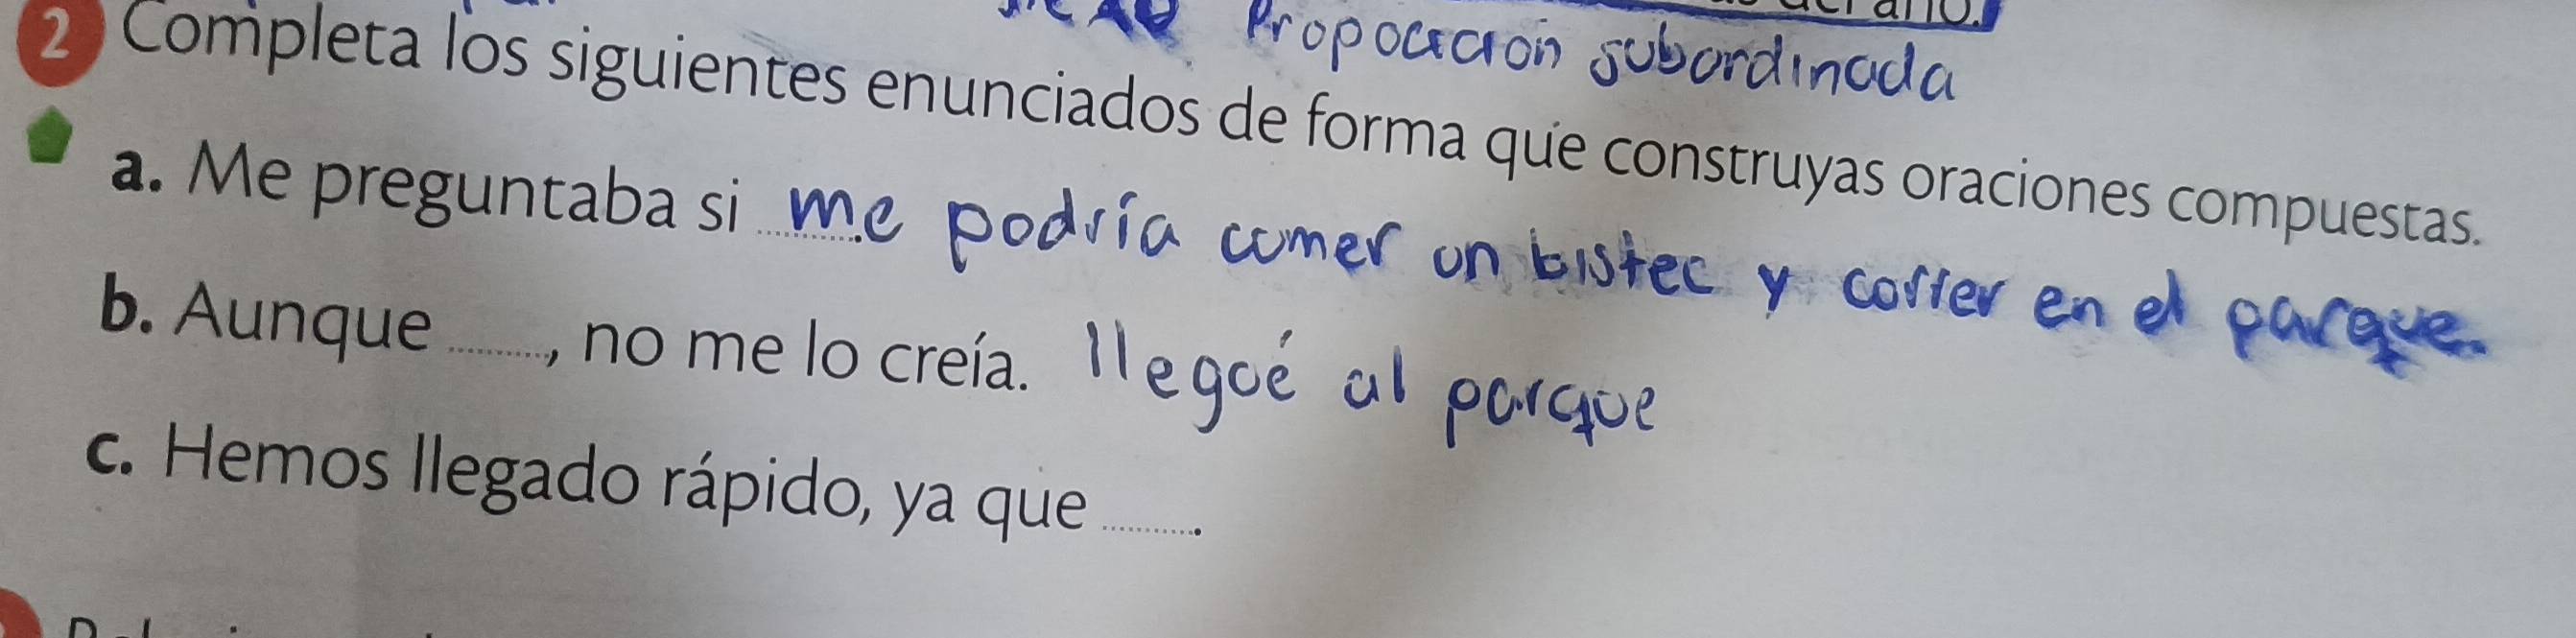 del año.
Propocición subordinada
2 Completa los siguientes enunciados de forma que construyas oraciones compuestas.
a. Me preguntaba si ........ me podría comer un bistec y correr en el parque.
b. Aunque ........, no me lo creía. llegué al parque
c. Hemos llegado rápido, ya que ........